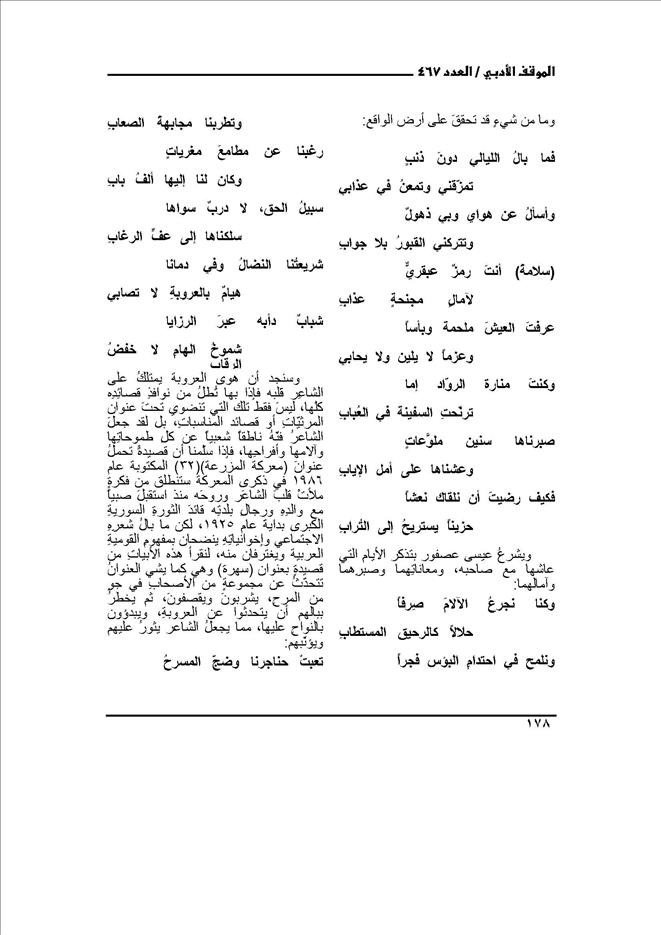 الموقف الأدبي / العدد ٤٦٧
وما من شيءٍ قد تحققَ على أرض الواقع:
فما بالُ الليالي دونَ ذنبٍ
تمزّقني وتمعنُ في عذابي
وأسألُ عن هواي وبي ذهولٌ
وتتركني القبورُ بلا جوابِ
(سلامة) أنتَ رمزٌ عبقريٌّ
لآمالٍ مجنحةٍ عذابِ
عرفتَ العيشَ ملحمة وبأساً
وعزماً لا يلين ولا يحابي
وكنتَ منارة الروّاد إما
ترنّحتِ السفينة في العُبابِ
صبرناها سنين ملوَّعاتٍ
وعشناها على أمل الإيابِ
فكيف رضيتَ أن نلقاك نعشاً
حزيناً يستريحُ إلى التُرابِ
ويشرعُ عيسى عصفور بتذكر الأيام التي
عاشها مع صاحبه، ومعاناتِهما وصبرهما
وآمالهما:
وكنا نجرعُ الآلامَ صِرفاً
حلالاً كالرحيق المستطابِ
ونلمح في احتدامِ البؤس فجراً
وتطربنا مجابهة الصعابِ
رغبنا عن مطامعَ مغرياتٍ
وكان لنا إليها ألفُ بابِ
سبيلُ الحق، لا دربٌ سواها
سلكناها إلى عفِّ الرغابِ
شريعتُنا النضالُ وفي دمانا
هيامٌ بالعروبةِ لا تصابي
شبابٌ دأبه عبرَ الرزايا
شموخُ الهام لا خفضُ
الرقاب
وسنجد أن هوى العروبة يمتلكُ على
الشاعرِ قلبه فإذا بها تُطلُّ من نوافذِ قصائدِه
كلها، ليسَ فقط تلك التي تنضوي تحتَ عنوانِ
المرثيّاتِ أو قصائد المناسباتِ، بل لقد جعلَ
الشاعرُ فنّهُ ناطقاً شعبياً عن كل طموحاتِها
وآلامِها وأفراحِها، فإذا سلّمنا أن قصيدةً تحملُ
عنوانَ (معركة المزرعة)(٣٢) المكتوبة عام
١٩٨٦ في ذكرى المعركة ستنطلق من فكرةٍ
ملأتْ قلبَ الشاعر وروحَه منذ استقبلَ صبياً
مع والدِهِ ورجالِ بلدتِه قائدَ الثورةِ السوريةِ
الكبرى بداية عام ١٩٢٥، لكن ما بالُ شعره
الاجتماعي وإخوانياتِهِ ينضحان بمفهوم القوميةِ
العربية ويغترفان منه، لنقرأ هذه الأبياتِ من
قصيدةٍ بعنوان (سهرة) وهي كما يشي العنوانُ
تتحدّثُ عن مجموعةٍ من الأصحابِ في جو
من المرح، يشربونَ ويقصفونَ، ثم يخطرُ
ببالهم أن يتحدثوا عن العروبةِ، ويبدؤون
بالنواح عليها، مما يجعلُ الشاعر يثورُ عليهم
ويؤنّبهم:
تعبتْ حناجرنا وضجّ المسرحُ
١٧٨